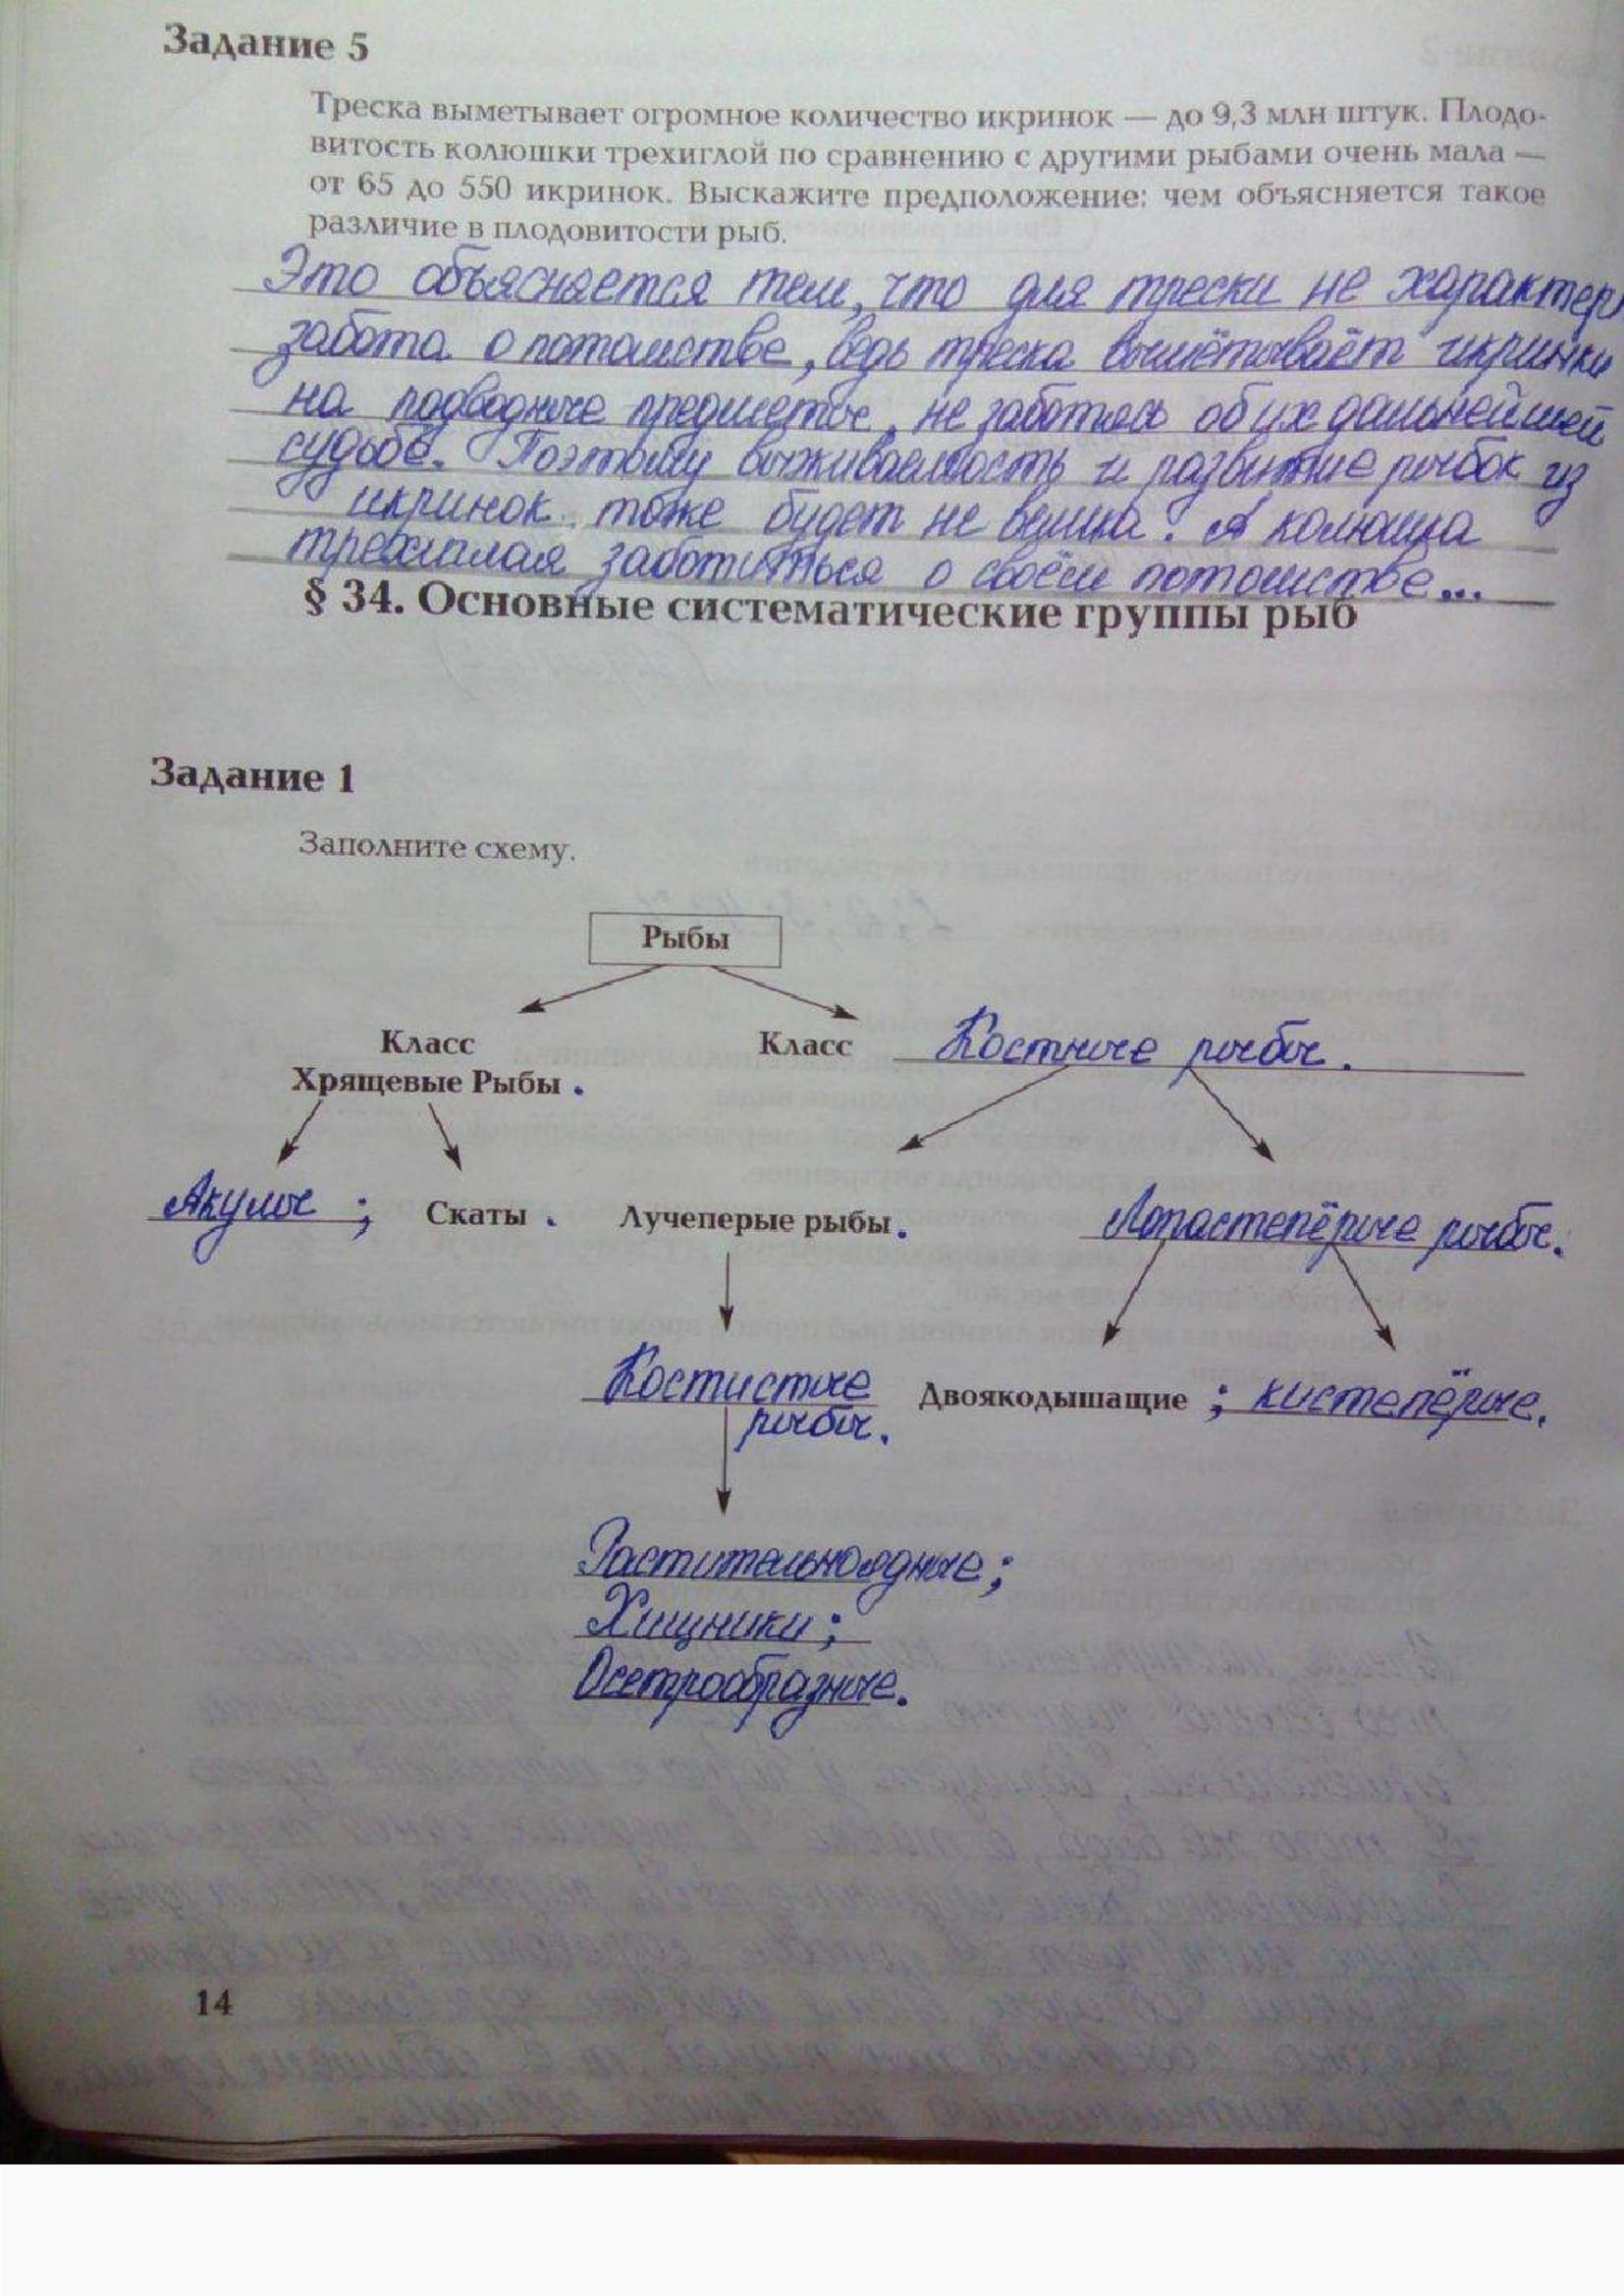 Задание 5
Треска выметывает огромное количество икринок — до 9,3 млн штук. Плодо-
витость колюшки трехиглой по сравнению с другими рыбами очень мала —
от 65 до 550 икринок. Выскажите предположение: чем объясняется такое
различие в плодовитости рыб.
Это объясняется тем, что для трески не характер
забота о потомстве, ведь треска вымётывает икринки
на подводные предметы, не заботясь об их дальнейшей
судьбе. Поэтому выживаемость и развитие рыбок из
икринок тоже будет не велика. А колюшка
трехиглая заботиться о своём потомстве...
§ 34. Основные систематические группы рыб
Задание 1
Заполните схему.
Рыбы
Класс Класс Костные рыбы.
Хрящевые Рыбы.
Акулы; Скаты. Лучеперые рыбы. Лопастепёрые рыбы.
Костистые Двоякодышащие; кистепёрые.
рыбы.
Растительноядные;
Хищники;
Осетрообразные.
14